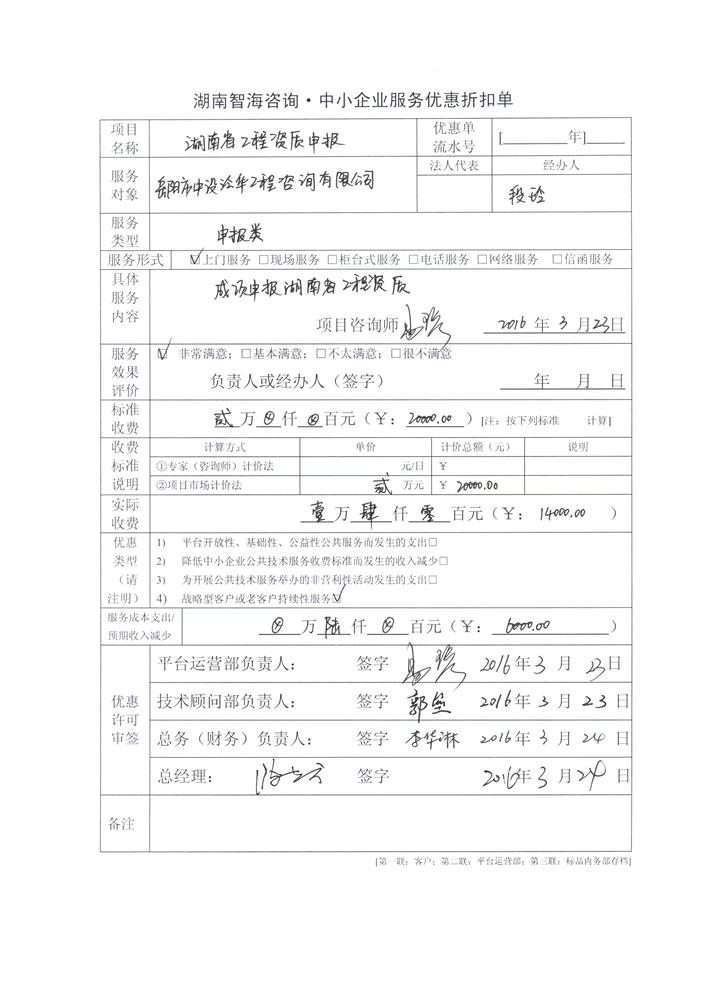 湖南智海咨询·中小企业服务优惠折扣单
项目名称 湖南省工程资质申报 优惠单流水号 [ 年]
服务对象 岳阳市中设泠华工程咨询有限公司 法人代表 经办人
段玲
服务类型 申报类
服务形式 ☑上门服务 □现场服务 □柜台式服务 □电话服务 □网络服务 □信函服务
具体服务内容 成项申报湖南省工程资质
项目咨询师 2016年3月23日
服务效果评价 ☑ 非常满意；□基本满意；□不太满意；□很不满意
负责人或经办人（签字） 年 月 日
标准收费 贰万⊗仟⊗百元（￥：20000.00）[注：按下列标准 计算]
收费标准说明 计算方式 单价 计价总额（元） 说明
①专家（咨询师）计价法 元/日 ￥
②项目市场计价法 贰 万元 ￥ 20000.00
实际收费 壹万肆仟零百元（￥：14000.00）
优惠类型（请注明） 1) 平台开放性、基础性、公益性公共服务而发生的支出□
2) 降低中小企业公共技术服务收费标准而发生的收入减少□
3) 为开展公共技术服务举办的非营利性活动发生的支出□
4) 战略型客户或老客户持续性服务☑
服务成本支出/预期收入减少 ⊗万陆仟⊗百元（￥：6000.00）
优惠许可审签 平台运营部负责人： 签字 2016年3月23日
技术顾问部负责人： 签字 2016年3月23日
总务（财务）负责人： 签字 李华琳 2016年3月24日
总经理： 签字 2016年3月24日
备注
[第一联：客户；第二联：平台运营部；第三联：标品内务部存档]